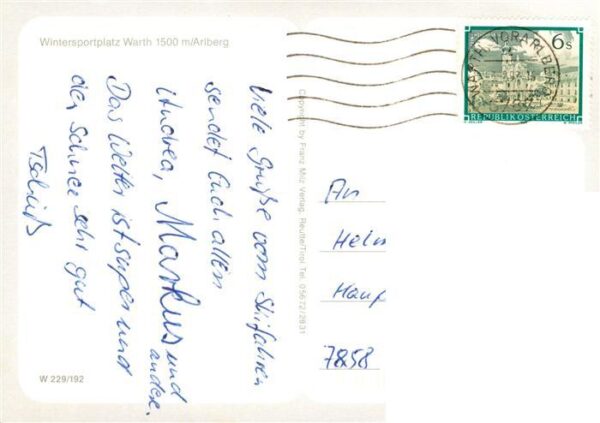 Wintersportplatz Warth 1500 m/Arlberg
Viele Grüße vom Skifahren
sendet Euch allen
Andrea, Markus und
andere.
Das Wetter ist super und
der Schnee sehr gut
Tschüß
W 229/192
Copyright by Franz Milz Verlag, Reutte/Tirol Tel. 05672/2831
6 S
REPUBLIK ÖSTERREICH
VORARLBERG
An
Hein
Haup
7858